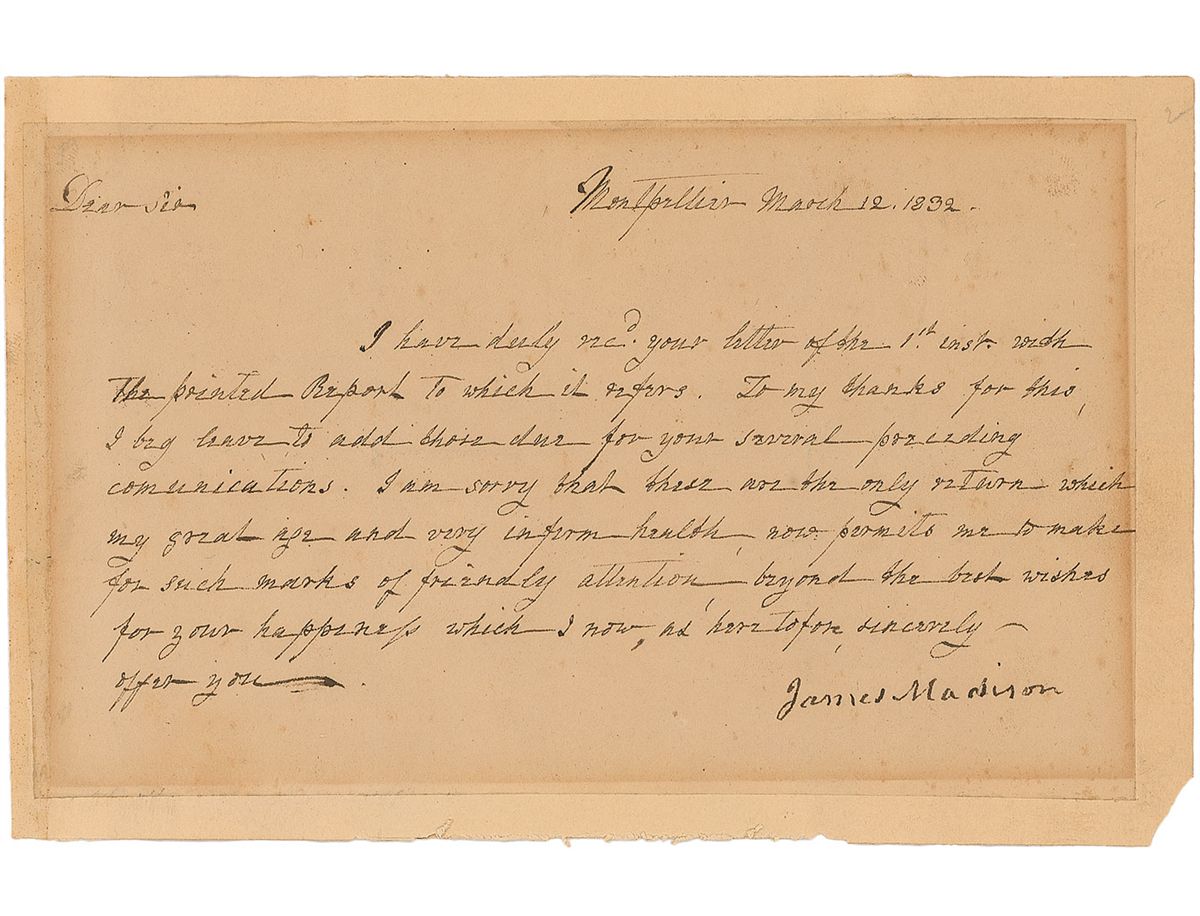 Dear Sir
Montpellier March 12. 1832.
I have duly recd. your letter of the 1st. inst. with
the printed Report to which it refers. To my thanks for this,
I beg leave to add those due for your several preceding
comunications. I am sorry that these are the only return which
my great age and very infirm health, now permits me to make
for such marks of friendly attention, beyond the best wishes
for your happiness which I now, as heretofore, sincerely
offer you.
James Madison
2